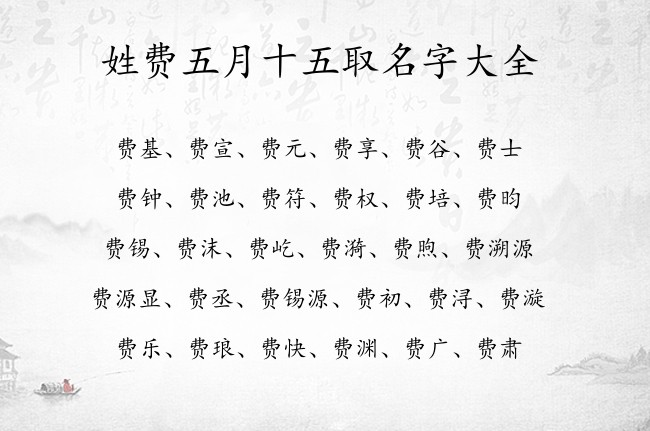 姓费五月十五取名字大全
费基、费宣、费元、费享、费谷、费士
费钟、费池、费符、费权、费培、费昀
费锡、费沫、费屹、费漪、费煦、费溯源
费源显、费丞、费锡源、费初、费浔、费漩
费乐、费琅、费快、费渊、费广、费肃